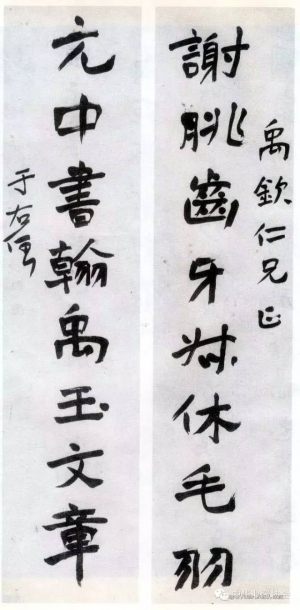 禹欽仁兄正
謝朓齒牙休毛羽
元中書翰禹玉文章
于右任